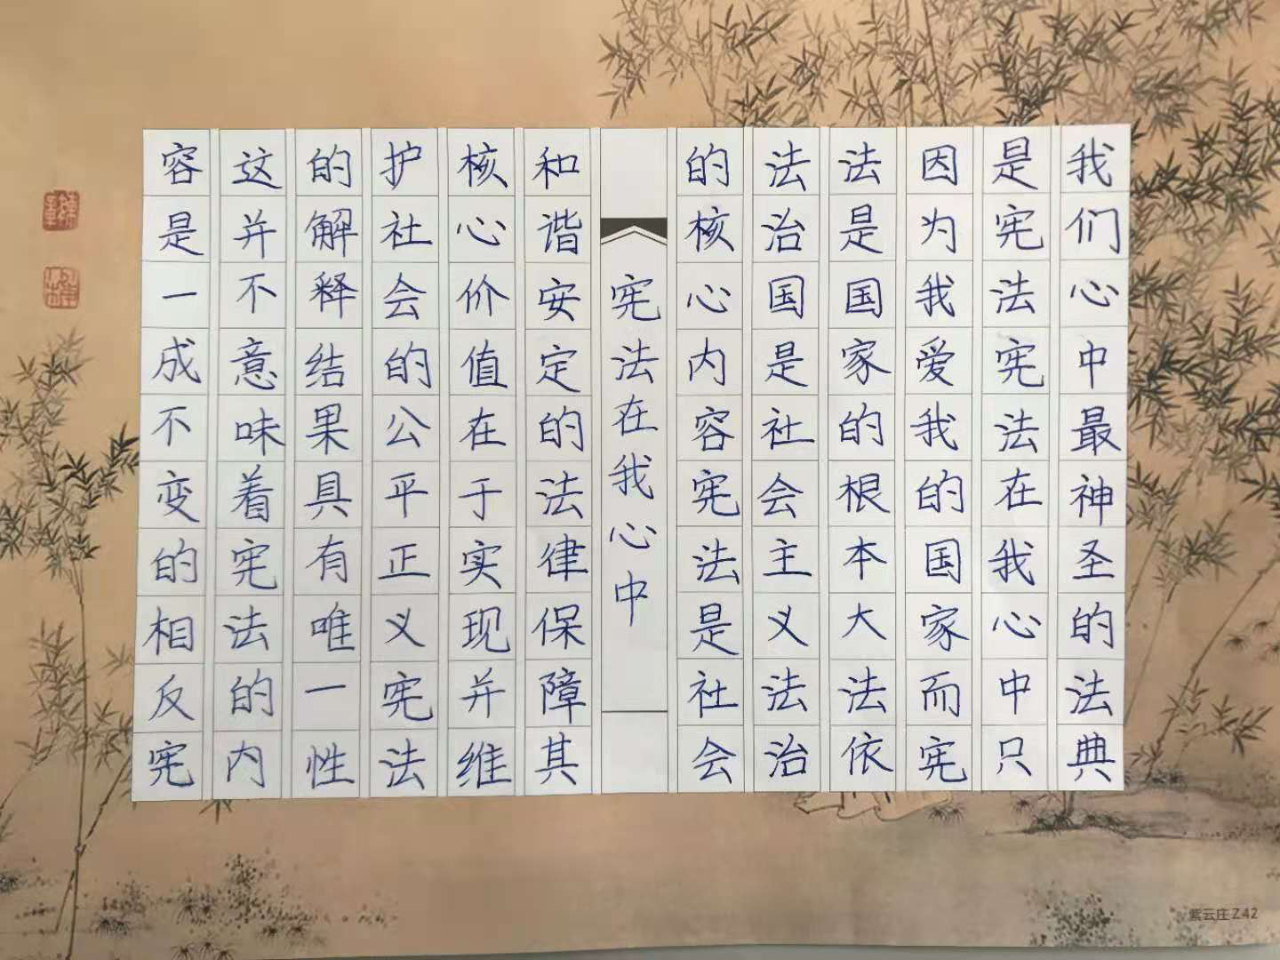 我们心中最神圣的法典
是宪法宪法在我心中只
因为我爱我的国家而宪
法是国家的根本大法依
法治国是社会主义法治
的核心内容宪法是社会
宪法在我心中
和谐安定的法律保障其
核心价值在于实现并维
护社会的公平正义宪法
的解释结果具有唯一性
这并不意味着宪法的内
容是一成不变的相反宪
紫云庄Z42